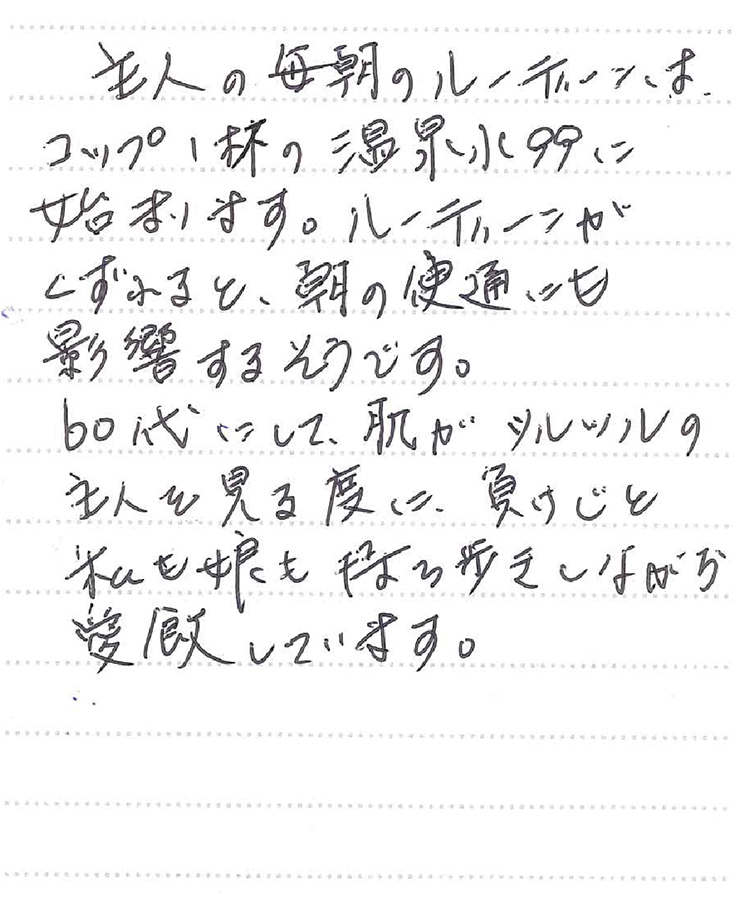 主人の毎朝のルーティーンは、
コップ1杯の温泉水99に
始まります。ルーティーンが
くずれると、朝の便通にも
影響するそうです。
60代にして、肌がツルツルの
主人を見る度に、負けじと
私も娘も持ち歩きしながら
愛飲しています。